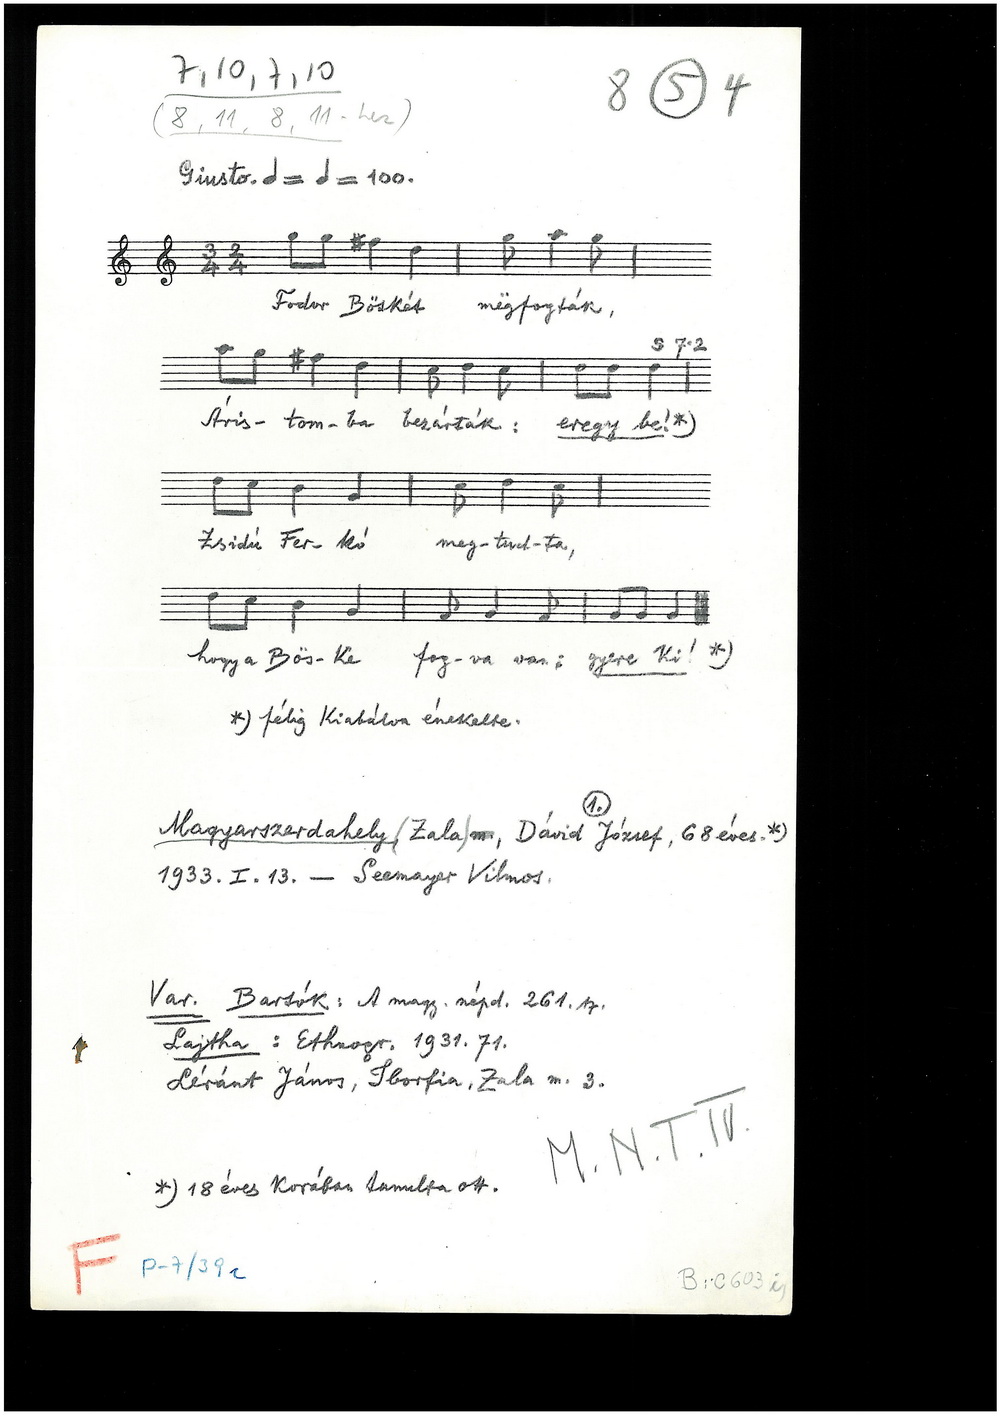 7, 10, 7, 10
8 5 4
(8, 11, 8, 11-hez)
Giusto. = = 100.
3 2
4 4
Fodor Böskét mëgfogták,
S 7-2
Áris- tom- ba bezárták: eregy be! *)
Zsidú Fer- kó meg-tud-ta,
hogy a Bös- ke fog-va van: gyere ki! *)
*) félig kiabálva énekelte.
1.
Magyarszerdahely (Zala) m, Dávid József, 68 éves. *)
1933. I. 13. — Seemayer Vilmos.
Var. Bartók: A magy. népd. 261. sz.
Lajtha: Ethnogr. 1931. 71.
Léránt János, Iborfia, Zala m. 3.
M. N. T. IV.
*) 18 éves korában tanulta ott.
F P-7/39
B:C 603